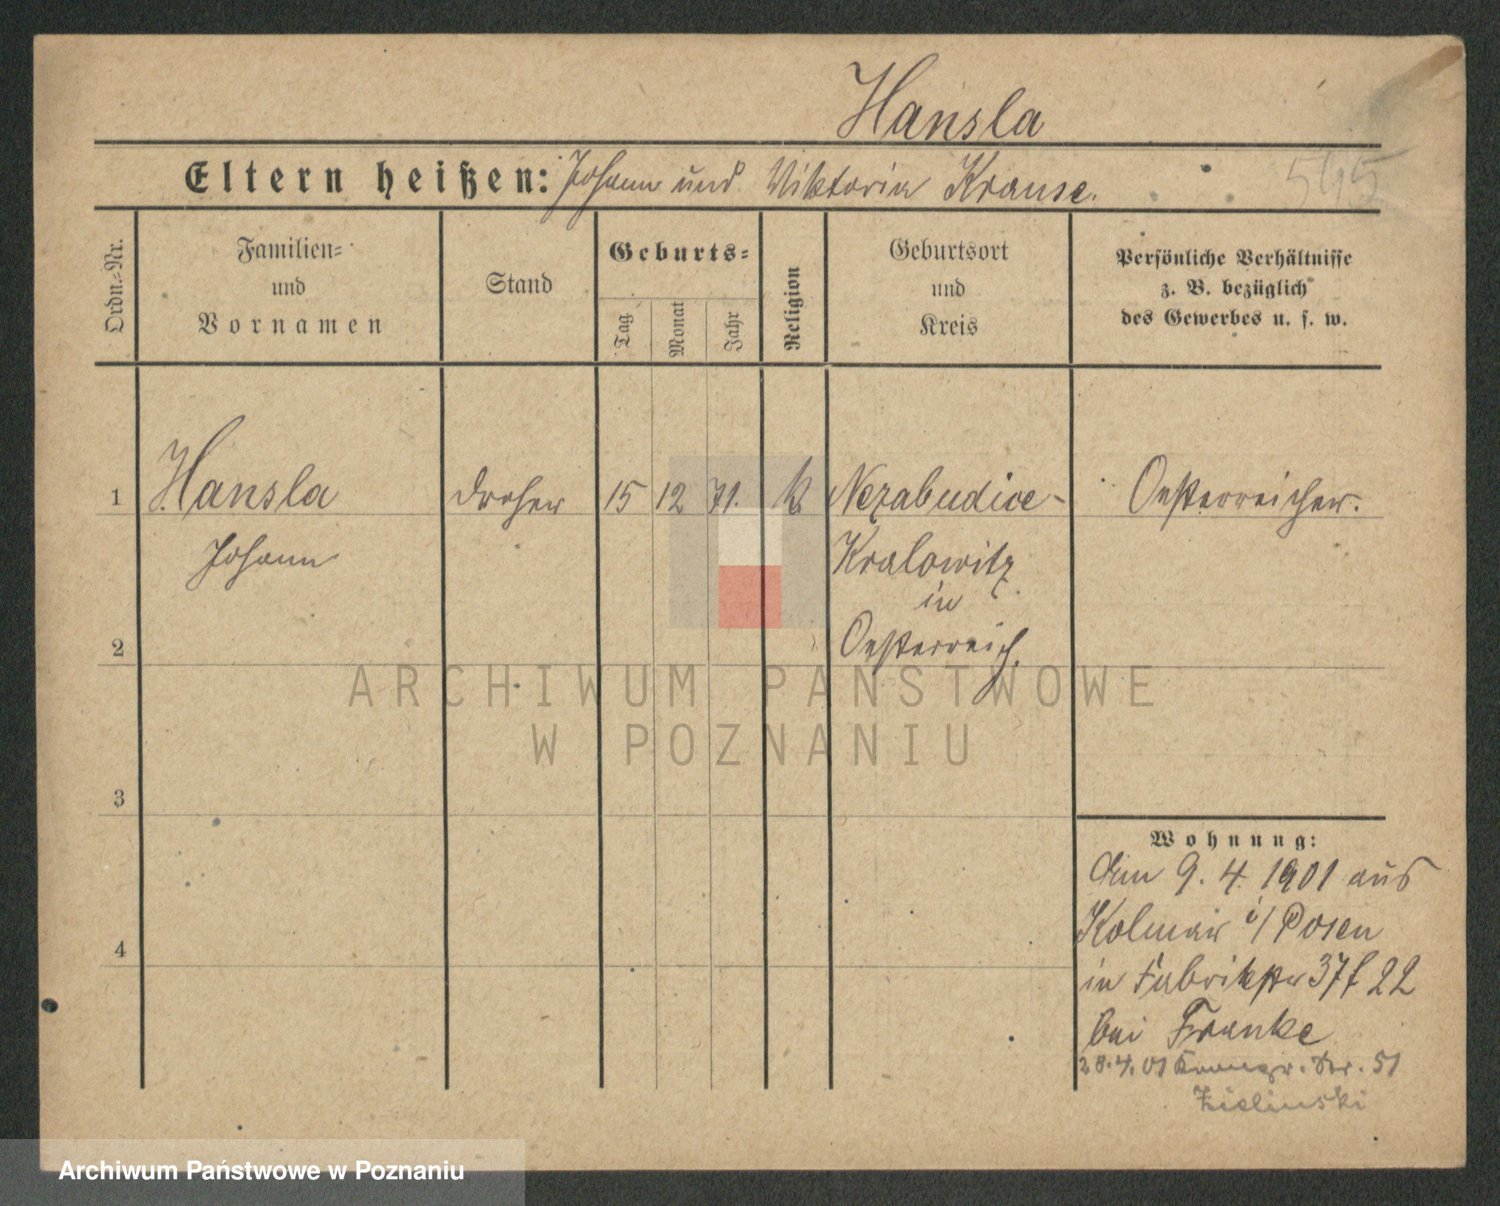 Hansla
Eltern heißen: Johann und Viktoria Krause.
545
Ordn.-Nr.
Familien-
und
Vornamen
Stand
Geburts-
Tag
Monat
Jahr
Religion
Geburtsort
und
Kreis
Persönliche Verhältnisse
z. B. bezüglich
des Gewerbes u. s. w.
1 Hansla Dreher 15 12 71. k Nezabudice- Oesterreicher.
Johann Kralowitz
in
2 Oesterreich.
ARCHIWUM PAŃSTWOWE
W POZNANIU
3
Wohnung:
Am 9. 4. 1901 aus
Kolmar i/ Posen
4
in Fabrikstr 37 f 22
bei Franke
28.4.01 Kronprz. Str. 51
Zielinski
Archiwum Państwowe w Poznaniu